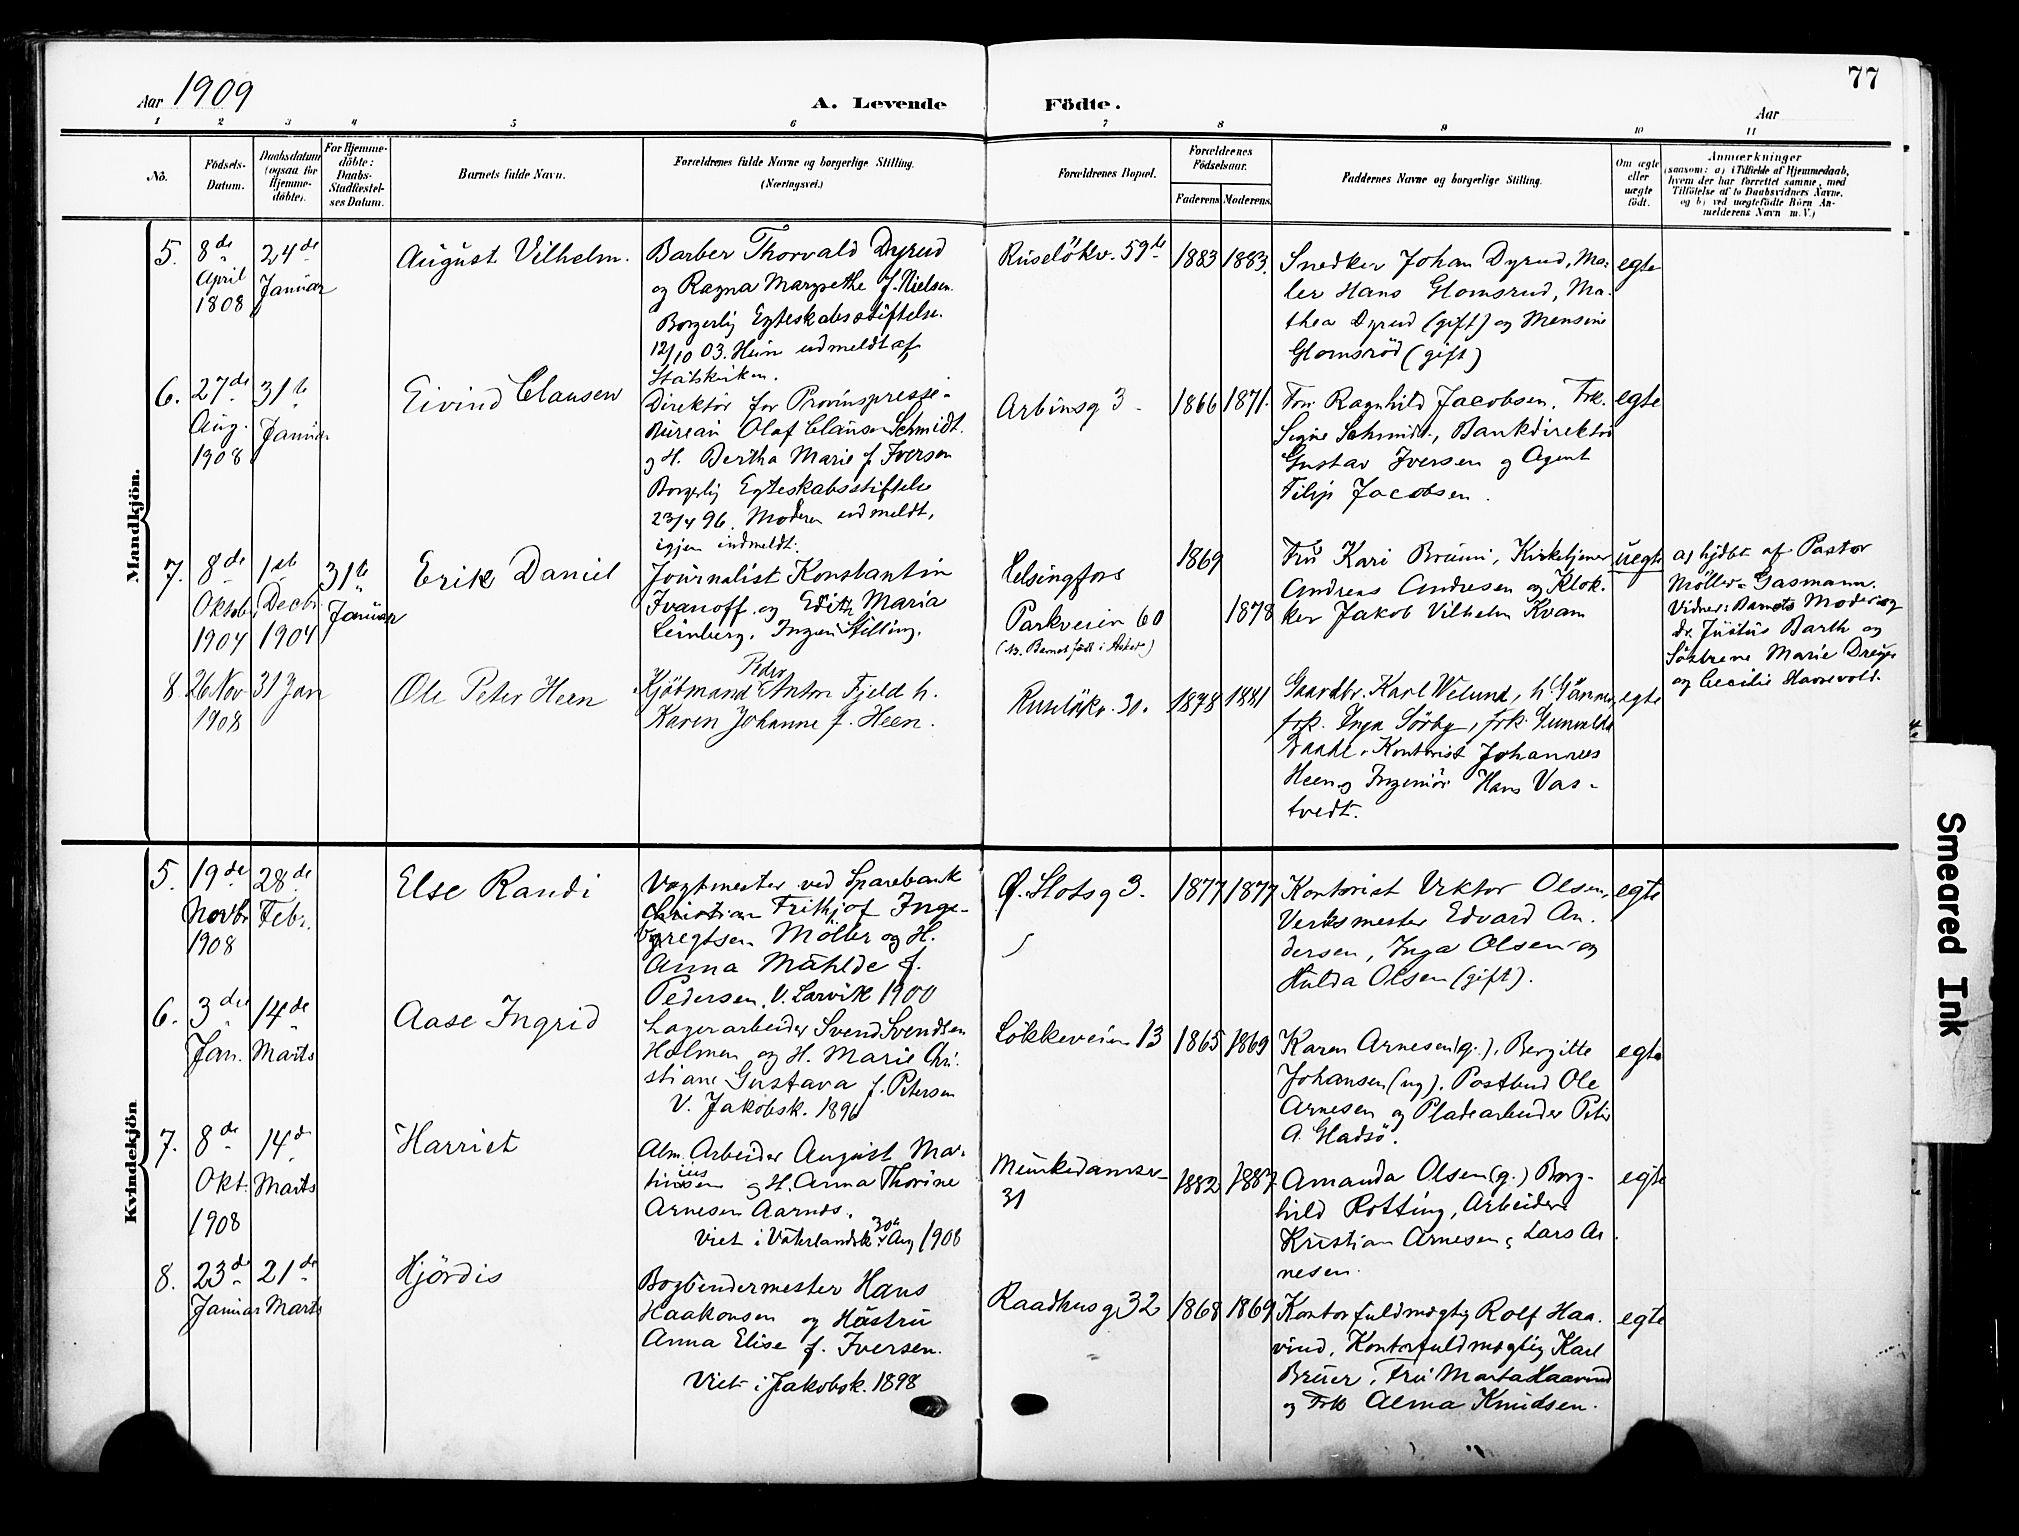 77
Aar 1909
A. Levende Födte.
Aar
1 2 3 4 5 6 7 8 9 10 11
No.
Födsels-Datum.
Daabsdatum (ogsaa for Hjemme-döbte).
For Hjemme-döbte: Daabs-Stadfæstel-ses Datum.
Barnets fulde Navn.
Forældrenes fulde Navne og borgerlige Stilling. (Næringsvei.)
Forældrenes Bopæl.
Forældrenes Födselsaar.
Faderens Moderens
Faddernes Navne og borgerlige Stilling.
Om ægte eller uægte födt.
Anmærkninger
(saasom: a) i Tilfælde af Hjemmedaab,
hvem der har forrettet samme, med
Tilföielse af to Daabsvidners Navne,
og b) ved uægtefödte Börn An-
melderens Navn m. V.)
Mandkjön.
5. 8de April 1808
24de Januar
August Vilhelm.
Barber Thorvald Dyrud
og Ragna Margrethe f. Nielsen.
Borgerlig Egteskabsstiftelse.
12/10 03. Hun udmeldt af
Statskirken.
Ruselökv. 59
1883 1883.
Snedker Johan Dyrud, Ma-
ler Hans Glomsrud, Ma-
thea Dyrud (gift) og Mensine
Glomsröd (gift)
egte
6. 27de Aug. 1908
31te Januar
Eivind Clausen
Direktör for Provinspresse-
Bureau Olaf Clausen Schmidt
og H. Bertha Marie f. Iversen
Borgerlig Egteskabsstiftelse
23/4 96. Moderen udmeldt,
igjen indmeldt.
Arbinsg 3.
1866 1871.
Fru Ragnhild Jacobsen, Frk.
Signe Schmidt, Bankdirektör
Gustav Iversen og Agent
Filip Jacobsen.
egte
7. 8de Oktob. 1904
1st Decbr. 1904
31te Januar
Erik Daniel
Journalist Konstantin
Ivanoff og Edith Maria
Leinberg. Ingen Stilling.
Helsingfors
Parkveien 60
(N. Barnet födt i Asker)
1869 1878
Fru Kari Bruun, Kirketjener
Andreas Andresen og Klok-
ker Jakob Vilhelm Kvam
uegte
a) hjdbt af Pastor
Möller-Gasmann.
Vidner: Barnets Moder og
dr. Justus Barth og
Söstrene Marie Dreyer
og Cecilie Haarevold.
8. 26 Nov 1908
31 Jan
Ole Peter Heen
Kjöbmand Peder Anton Fjeld h.
Karen Johanne f. Heen.
Ruselökv. 30.
1878 1881
Gaardbr. Karl Welund, h
frk. Inga Sörby, frk
Kontorist Johannes
Heen og Ingeniör Hans Vas-
tvedt.
egte
Kvindekjön
5. 19de Novbr 1908
28de Febr.
Else Randi
Vagtmester ved Sparebank
Christian Frithjof Inge-
bregtsen Möller og H.
Anna Mathilde f.
Pedersen. V. Larvik 1900
Ö. Slotsg 3.
1877 1877
Kontorist Viktor Olsen,
Verksmester Edvard An-
dersen, Inga Olsen og
Hulda Olsen (gift).
egte
6. 3die Jan.
14de Marts
Aase Ingrid
Lagerarbeider Svend Svendsen
Holmen og H. Marie Chri-
stiane Gustava f. Petersen
V. Jakobsk. 1896
Lökkeveien 13
1865 1869
Karen Arnesen (g.), Bergitte
Johansen (ug). Postbud Ole
Arnesen og Pladearbeider Peter
A. Gladsö.
egte
7. 8de Okt. 1908
14de Marts
Harriet
Alm. Arbeider August Mar-
tiniussen og H. Anna Thorine
Arnesen Aarnds.
Viet i Vaterlandsk. 30te Aug 1908
Munkedamsv-
31
1882 1887
Amanda Olsen (g.) Borg-
hild Rotting, Arbeider
Kristian Arnesen, Lars Ar-
nesen.
egte
8. 23de Januar
21de Marts
Hjördis
Bogbindermester Hans
Haakonsen og Hustru
Anna Elise f. Iversen.
Viet i Jakobsk. 1898
Raadhusg 32
1868 1869
Kontorfuldmægtig Rolf Haa-
vind, Kontorfuldmægtig Karl
Bruer, Fru Marta Haavind
og Frk Alma Knudsen.
egte
Smeared Ink